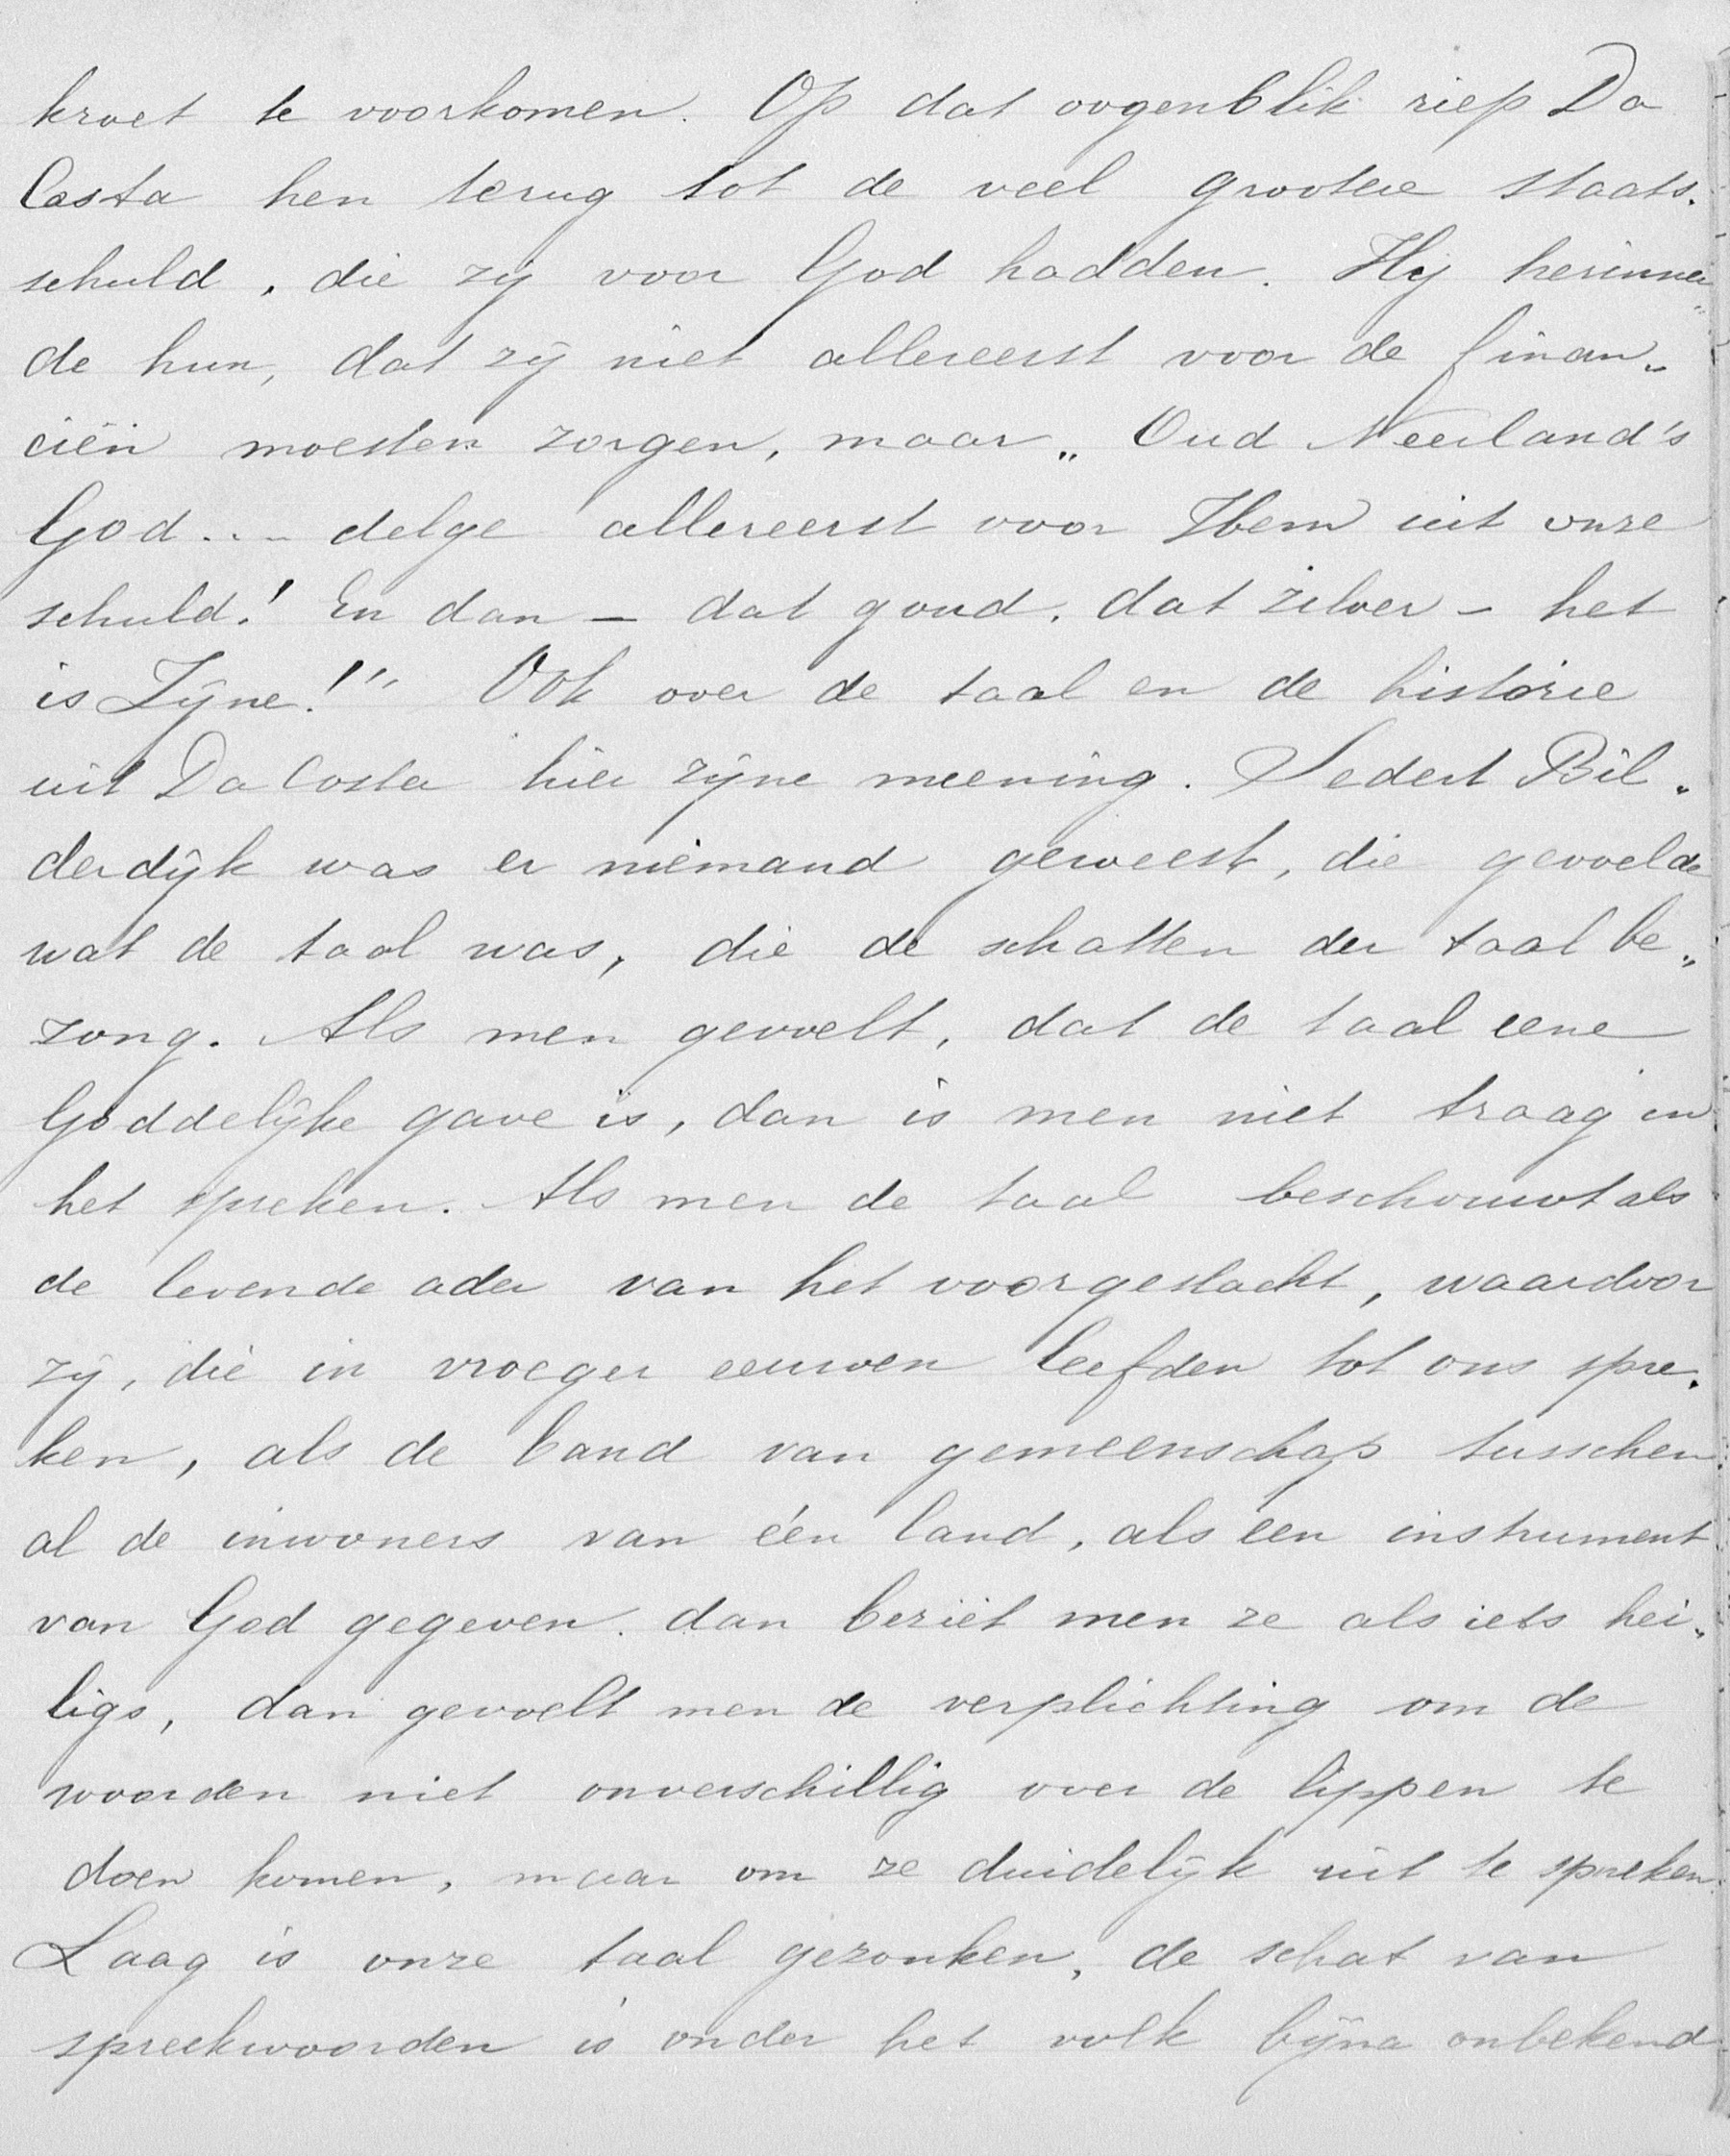 kroet te voorkomen. Op dat oogenblik riep Da
Costa hen terug tot de veel grootere staats„
schuld, die zij voor God hadden. Hij herinner„
de hun, dat zij niet allereerst voor de finan„
ciën moesten zorgen, maar „Oud Neerland's
God... delge allereerst voor Hem uit onze
schuld! En dan – dat goud, dat zilver – het
is Zijne!" Ook over de taal en de historie
uit Da Costa hier zijne meening. Sedert Bil„
derdijk was er niemand geweest, die gevoelde
wat de taal was, die de schatten der taal be„
zong. Als men gevoelt, dat de taal eene
Goddelijke gave is, dan is men niet traag in
het spreken. Als men de taal beschouwt als
de levende ader van het voorgeslacht, waardoor
zij, die in vroeger eeuwen leefden tot ons spre„
ken, als de band van gemeenschap tusschen
al de inwoners van één land, als een instrument
van God gegeven. dan beziet men ze als iets hei„
ligs, dan gevoelt men de verplichting om de
woorden niet onverschillig over de lippen te
doen komen, maar om ze duidelijk uit te spreken.
Laag is onze taal gezonken, de schat van
spreekwoorden is onder het volk bijna onbekend